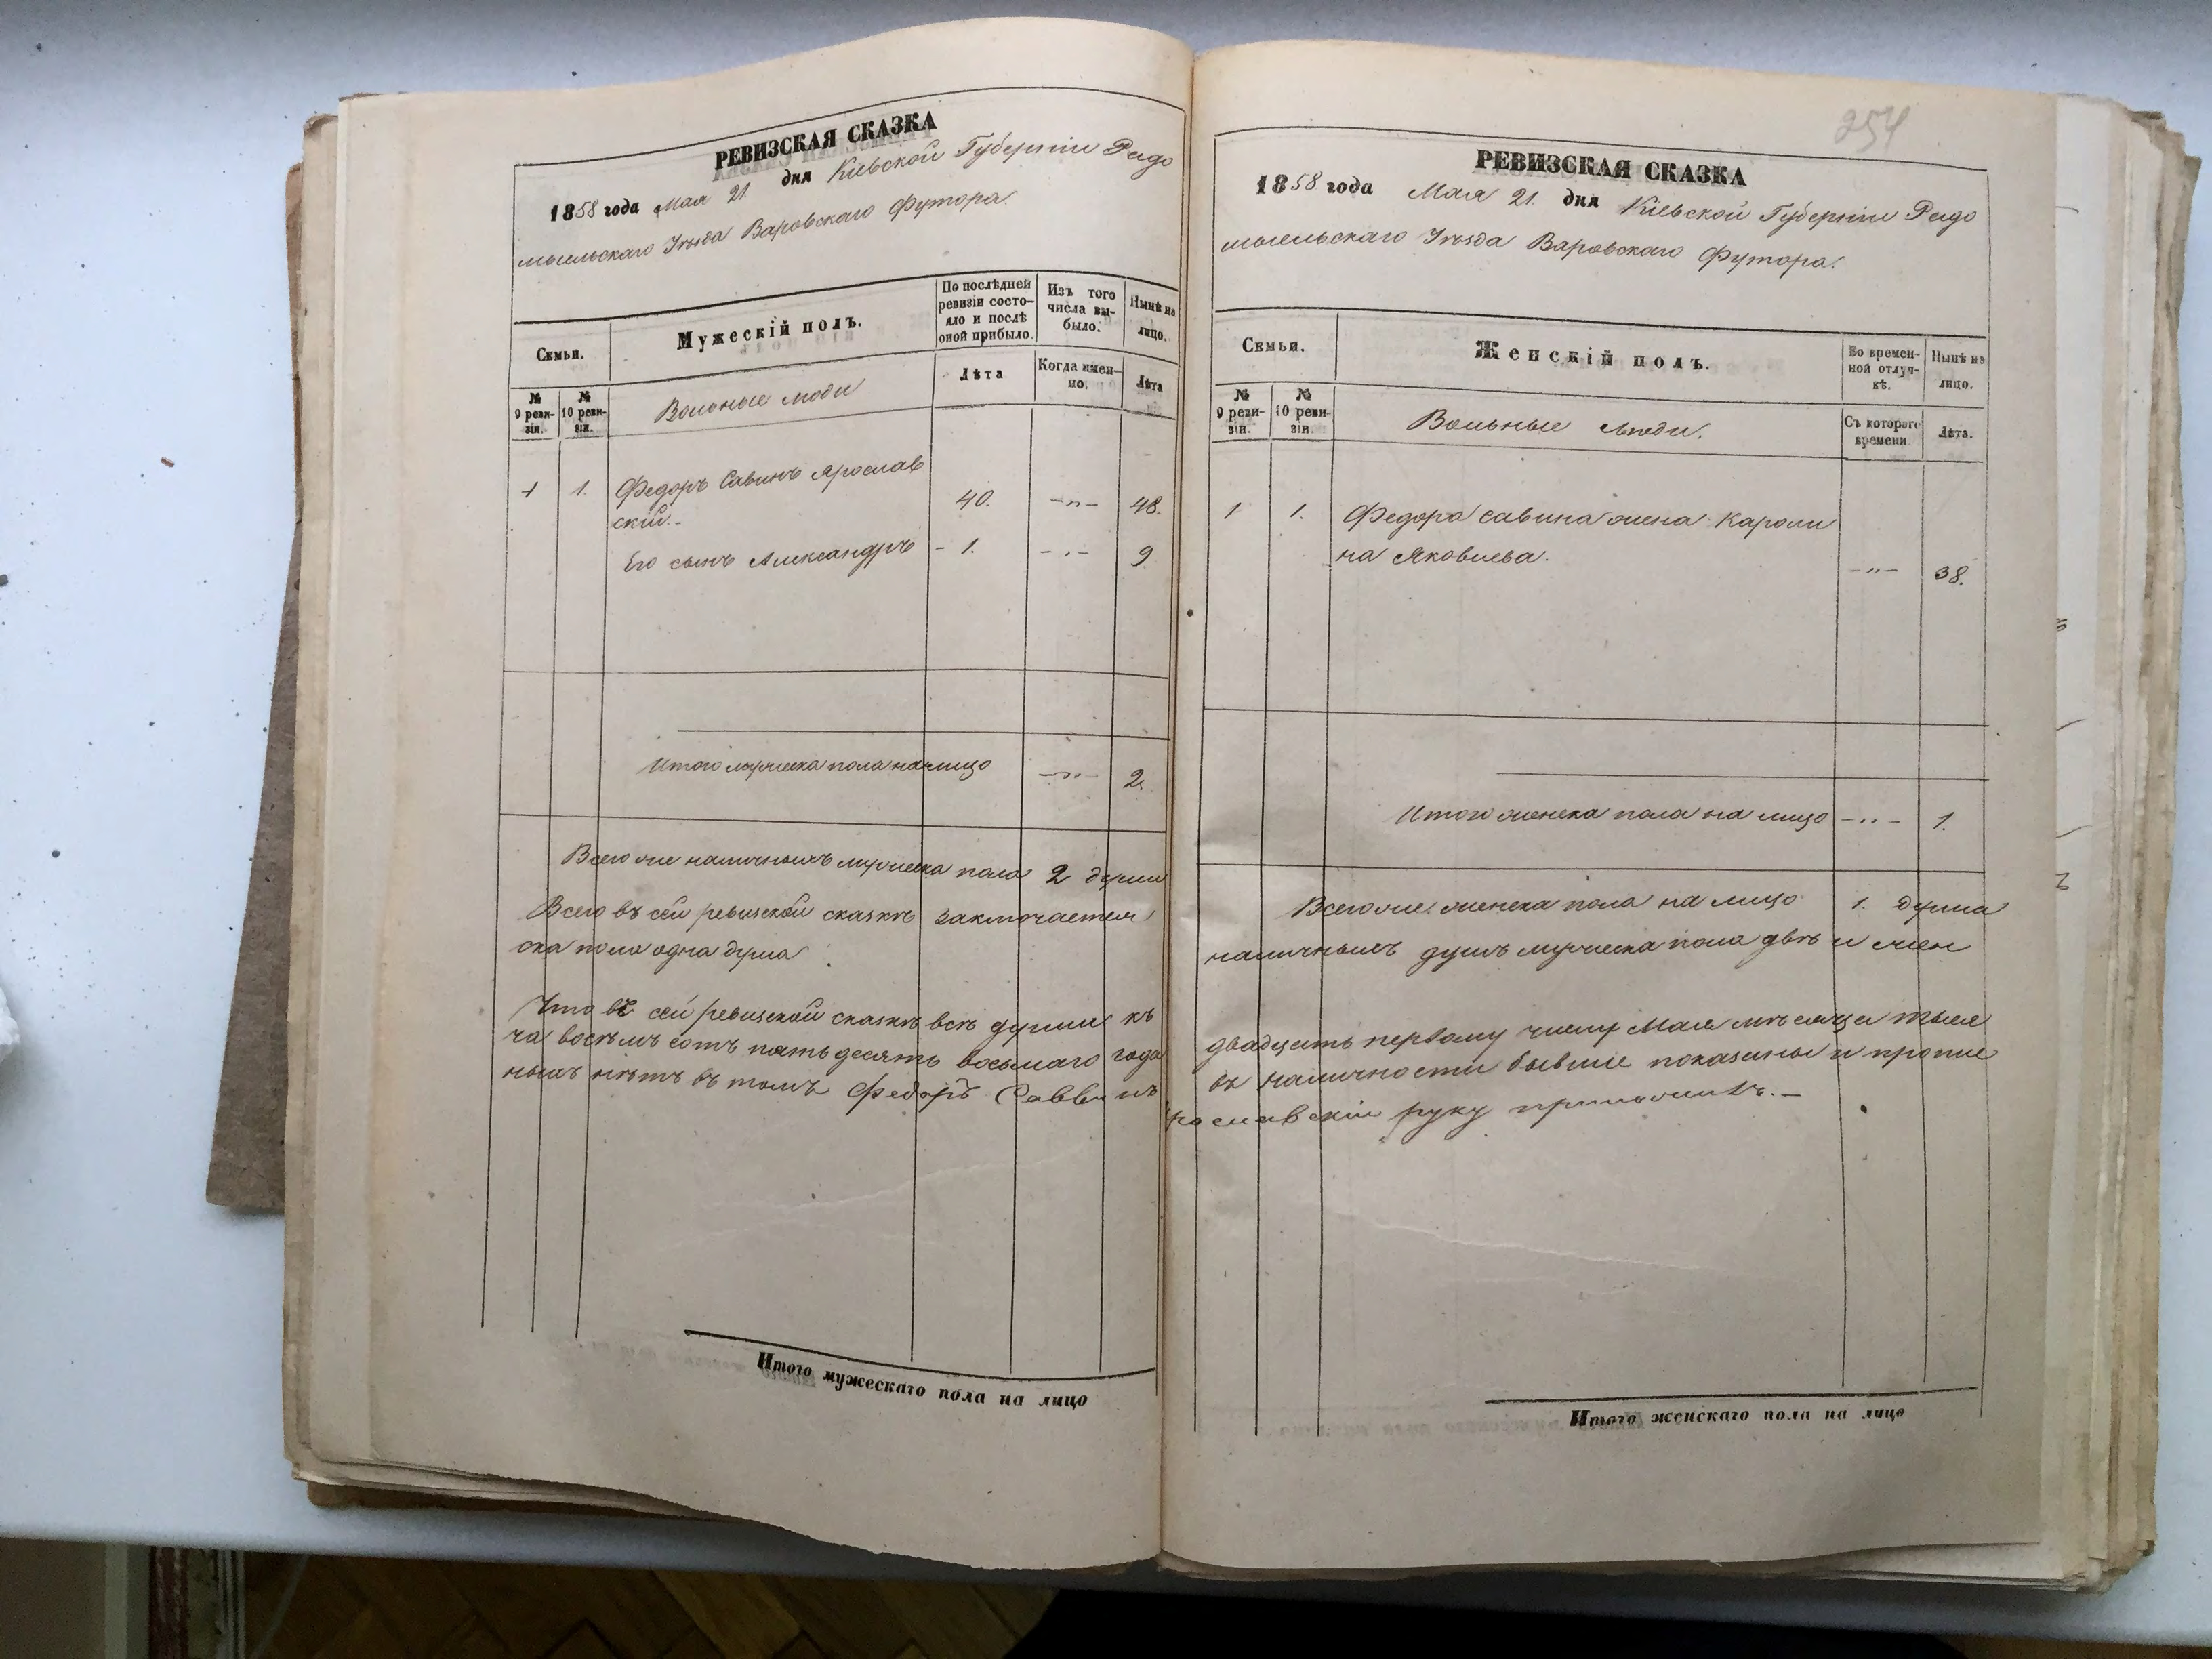 РЕВИЗСКАЯ СКАЗКА
1858 года Мая 21. дня Кіевской Губерніи Радо
мысльскаго Уѣзда Варовскаго Футора.
Семьи.
Мужескій полъ.
По послѣдней ревизіи состо-яло и послѣ оной прибыло.
Изъ того числа вы-было.
Нынѣ на лицо.
№ 9 реви-зіи.
№ 10 реви-зіи.
Вольные люди
Лѣта
Когда имен-но.
Лѣта
1 1. Федоръ Савинъ Ярослав
скій.- 40. -"- 48.
Его сынъ Александръ - 1. -"- 9
Итого мужеска пола на лицо -"- 2.
Всего же наличныхъ мужеска пола 2 души
Всего въ сей ревизской сказкѣ заключается
ска пола одна душа
Что въ сей ревизской сказкѣ всѣ души къ
ча восемъ сотъ пять десятъ восьмаго года
ныхъ нѣтъ въ томъ Федоръ Саввинъ
Итого мужескаго пола на лицо
254
РЕВИЗСКАЯ СКАЗКА
1858 года Мая 21. дня Кіевской Губерніи Радо
мысльскаго Уѣзда Варовскаго Футора.
Семьи.
Женскій полъ.
Во времен-ной отлуч-кѣ.
Нынѣ на лицо.
№ 9 реви-зіи.
№ 10 реви-зіи.
Вольные люди.
Съ котораго времени.
Лѣта.
1 1. Федора Савина жена Кароли
на Яковлева. -"- 38.
Итого женска пола на лицо -"- 1.
Всего же женска пола на лицо 1. душа
наличныхъ душъ мужеска пола двѣ и жен
двадцать первому числу Мая мѣсяца тыся
въ наличности бывшіе показаны и пропис
рославскій руку приложилъ.-
Итого женскаго пола на лицо